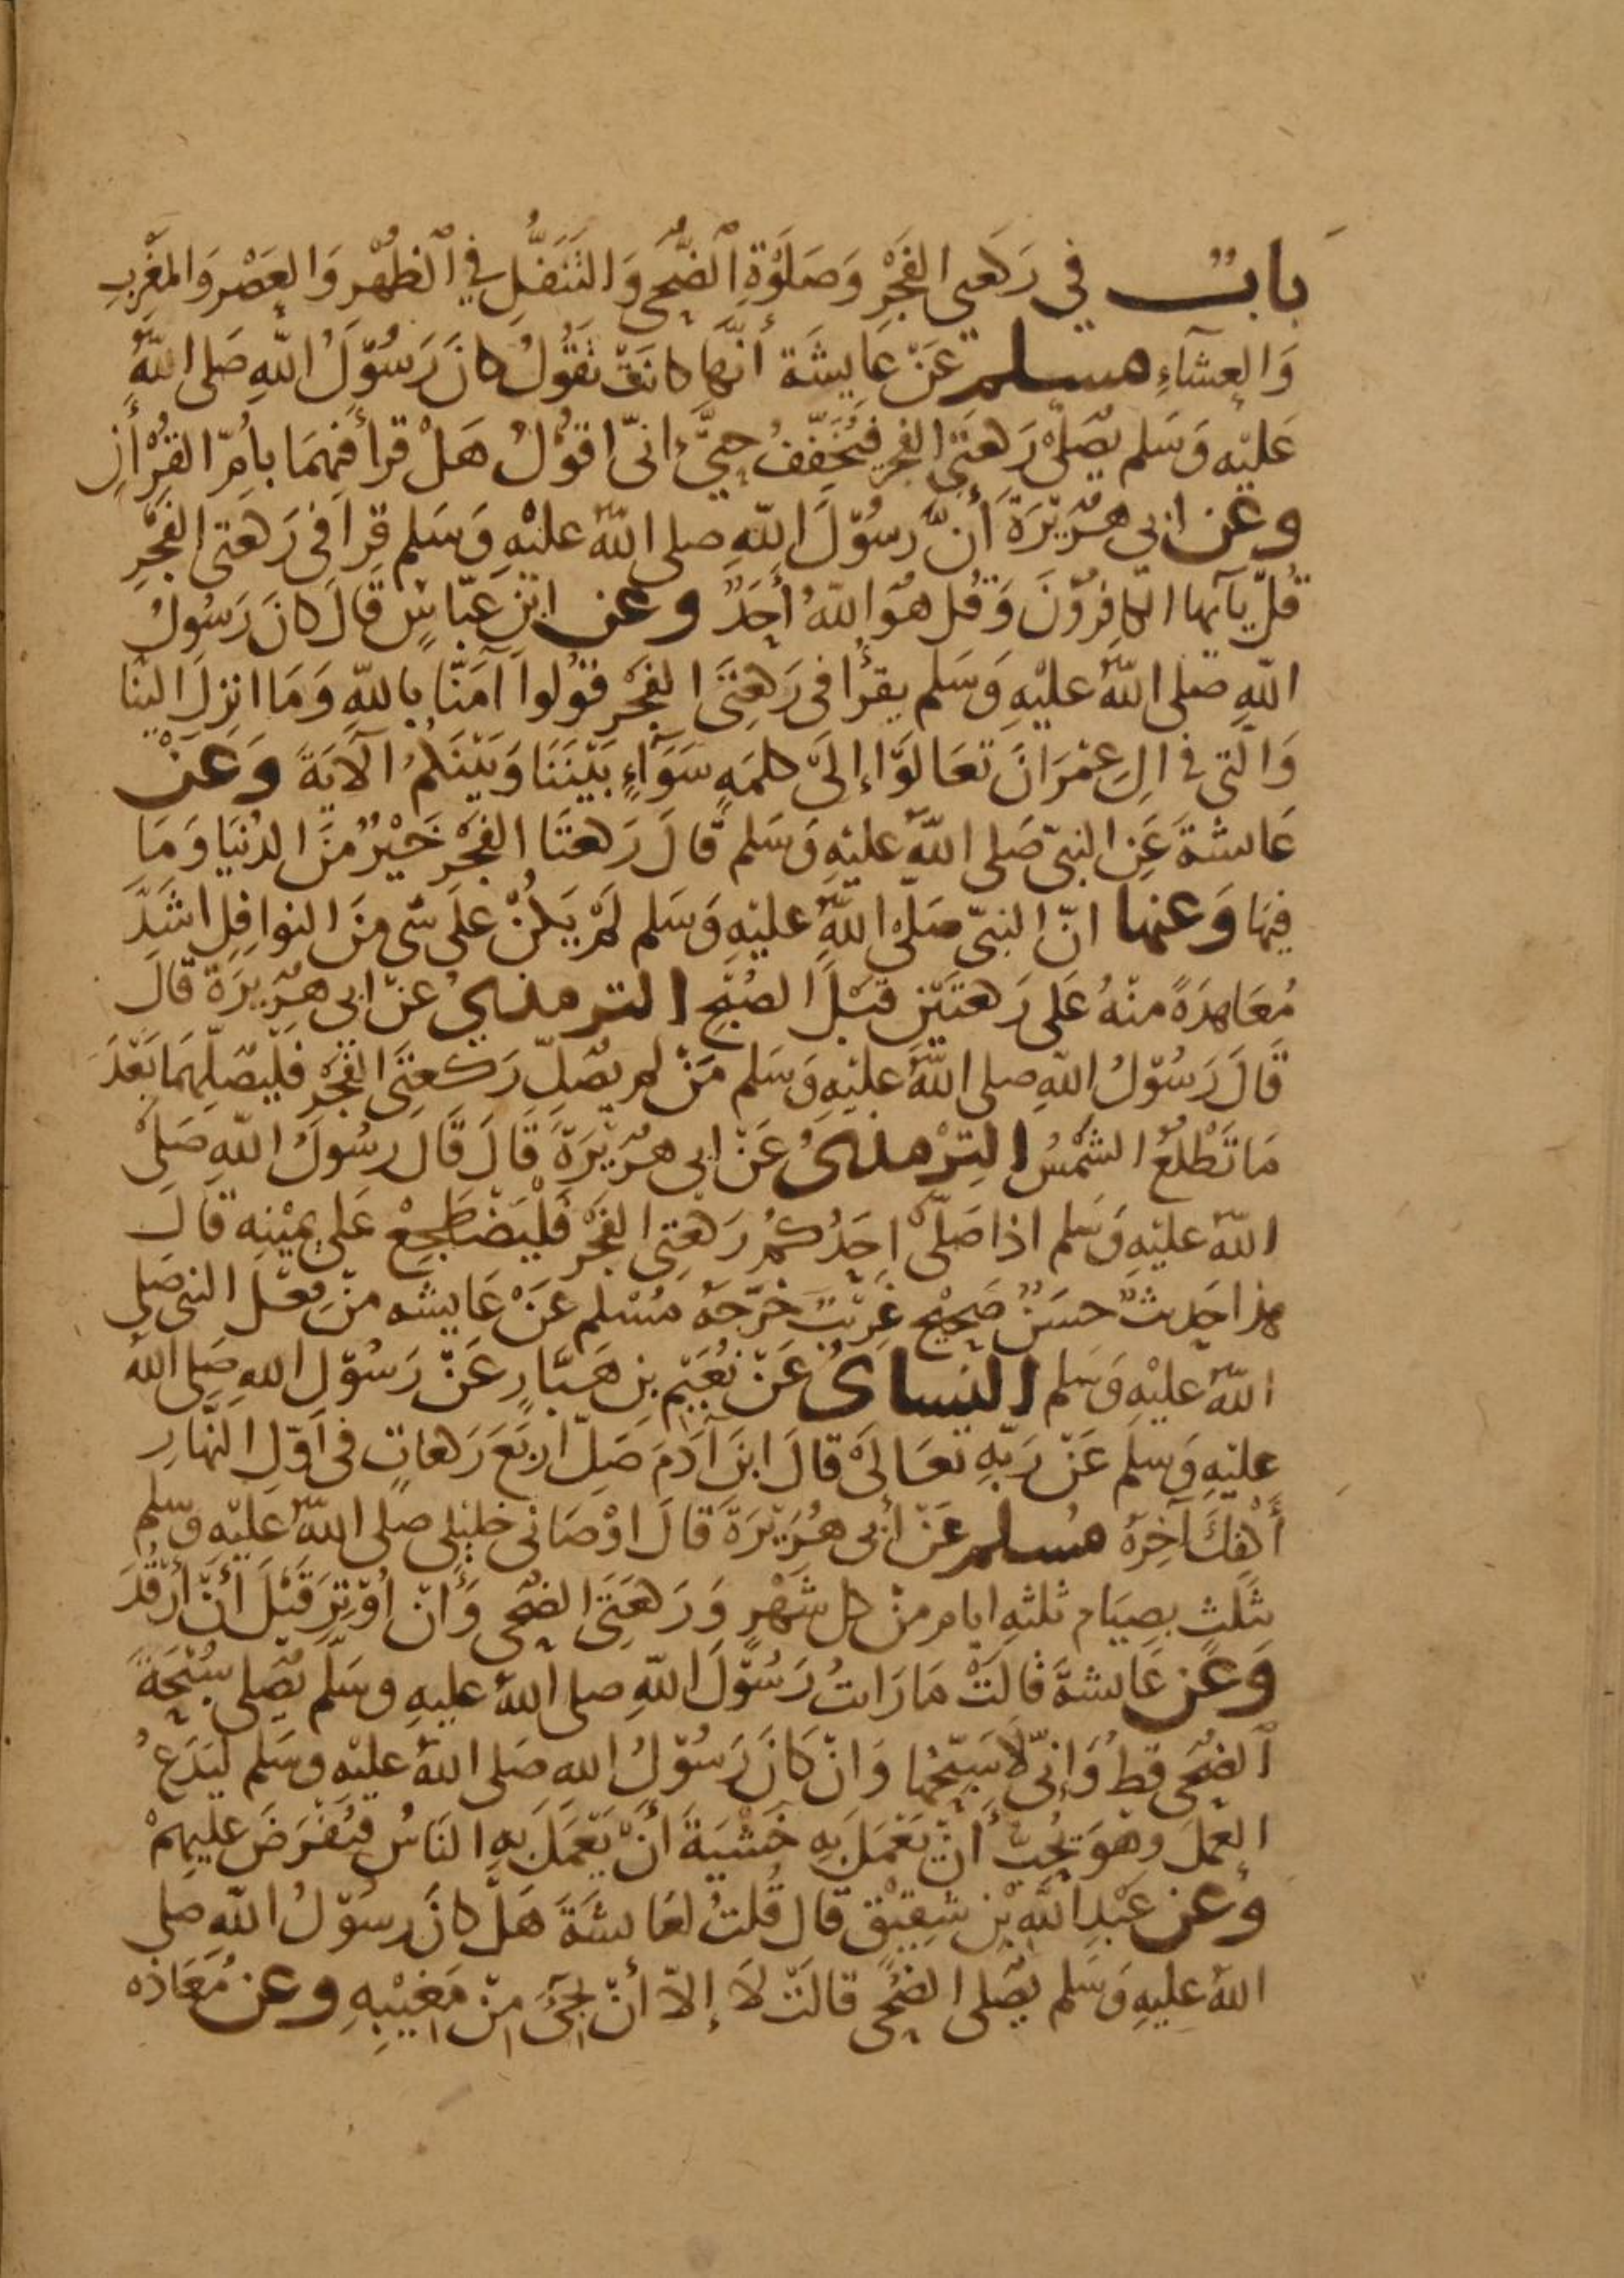 باب في ركعتي الفجر وصلوة الضحى والتنفل في الظهر والعصر والمغرب
والعشآء مسلم عن عايشة أنها كانت تقول كان رسول الله صلى الله
عليه وسلم يصلى ركعتي الفجر فيخفف حتى إنى اقول هل قرأ فيهما بأم القرأن
وعن ابي هريرة أن رسول الله صلى الله عليه وسلم قرا في ركعتى الفجر
قل يآيها الكافرون وقل هو الله أحد وعن ابن عباس قال كان رسول
الله صلى الله عليه وسلم يقرأ فى ركعتى الفجر قولوا آمنا بالله وما انزل الينا
والتي في ال عمران تعالوا إلى كلمه سوآء بيننا وبينكم الآية وعن
عايشة عن النبي صلى الله عليه وسلم قال ركعتا الفجر خير من الدنيا وما
فيها وعنها انّ النبيّ صلى الله عليه وسلم لم يكن على شى من النوافل اشد
معاهدة منه على ركعتين قبل الصبح الترمذي عن ابي هريرة قال
قال رسول الله صلى الله عليه وسلم من لم يصل ركعتى الفجر فليصلهما بعد
ما تطلع الشمس الترمذى عن ابى هريرة قال قال رسول الله صلى
الله عليه وسلم اذا صلى احدكم ركعتي الفجر فليضطجع على يمينه قال
هذا حديث حسن صحيح غريب خرجه مسلم عن عايشه من فعل النبي صلى
الله عليه وسلم النساى عن نعيم بن هبار عن رسول الله صلى الله
عليه وسلم عن ربه تعالى قال ابن آدم صل اربع ركعات فى أول النهار
أكفك آخره مسلم عن أبى هريرة قال اوصانى خليلى صلى الله عليه وسلم
بثلث بصيام ثلثه ايام من كل شهر وركعتى الضحى وأن اوتر قبل أن أرقد
وعن عايشة قالت ما رايت رسول الله صلى الله عليه وسلم يصلى سبحة
الضحى قط وإنى لاسبحها وان كان رسول الله صلى الله عليه وسلم ليدع
العمل وهو يحب أن يعمل به خشية أن يعمل به الناس فيفرض عليهم
وعن عبد الله بن شقيق قال قلت لعايشة هل كان رسول الله صلى
الله عليه وسلم يصلى الضحى قالت لا إلا أن يجى من مغيبه وعن معاذه